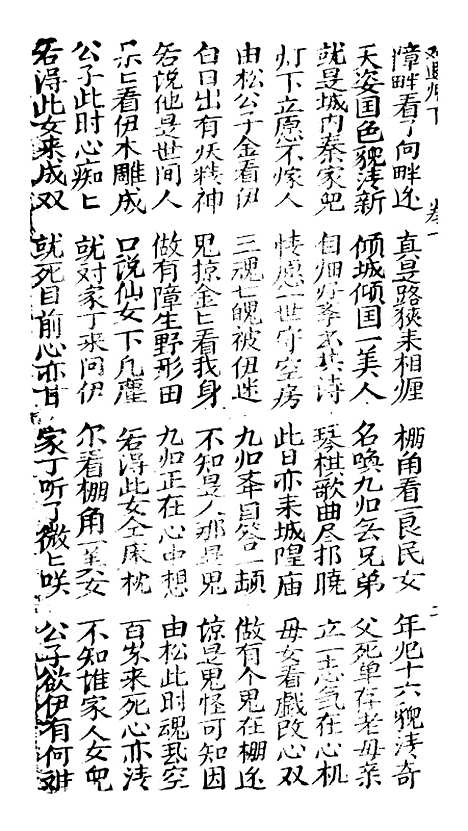 卷一
障畔看了向畔边 真是路狭来相缠 棚角看一良民女 年纪十六貌清奇
天姿国色貌清新 倾城倾国一美人 名唤九归无兄弟 父死单存老母亲
就是城内秦家儿 自细好李玄共诗 琴棋歌曲尽邦晓 立一志气在心机
灯下立愿不嫁人 情愿一世守空房 此日亦来城隍庙 母女看戯改心双
由松公子金看伊 三魂七魄被伊迷 九归举目答一 做有个鬼在棚边
白日出有妖精神 鬼掠金匕看我身 不知是人那是鬼 谅是鬼怪可知因
若说他是世间人 做有障生野形田 九归正在心中想 由松此时魂飞空
呆匕看伊木雕成 口说仙女下凡尘 若得此女仝床枕 百岁来死心亦清
公子此时心痴匕 就对家丁来问伊 尔看棚角一美女 不知谁家人女儿
若得此女来成双 就死目前心亦甘 家丁听了微匕咲 公子欲伊有何难